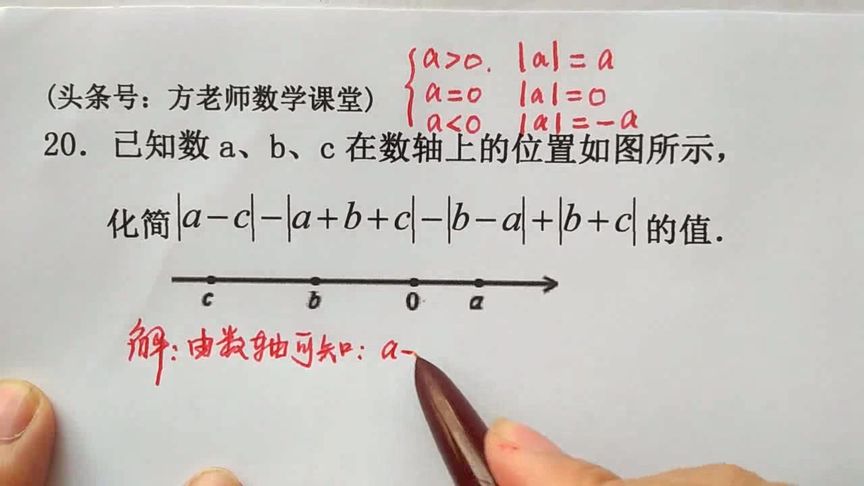 a>0. |a|=a
(头条号：方老师数学课堂) a=0 |a|=0
a<0 |a|=-a
20．已知数 a、b、c 在数轴上的位置如图所示，
化简|a-c|-|a+b+c|-|b-a|+|b+c|的值．
c b 0 a
解：由数轴可知：a-